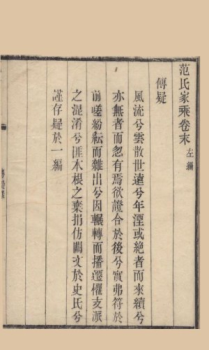 范氏家乘卷末 左編
傳疑
風流兮雲散世遠兮年湮或絕者而來續兮
亦無者而忽有焉欲證合於後兮實弗符於
前嗟紛耘而雜出兮因輾轉而播遷懼支派
之混淆兮匪木根之棄捐仿闕文於史氏兮
謹存疑於一編